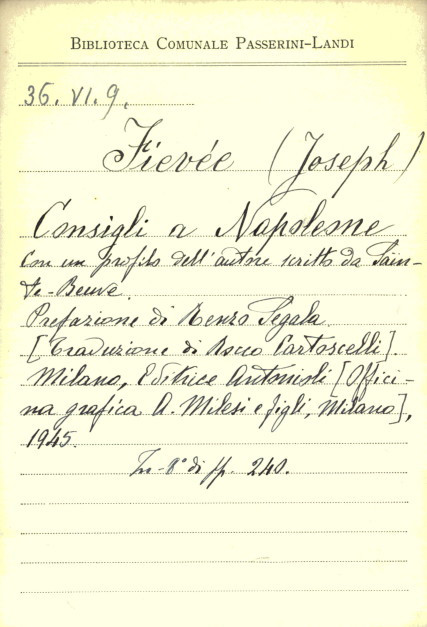 BIBLIOTECA COMUNALE PASSERINI-LANDI
36. VI. 9.
Fievée (Joseph)
Consigli a Napoleone
con un profilo dell'autore scritto da Sain-
te-Beuve.
Prefazione di Renzo Segala.
[Traduzione di Rocco Cartoscelli].
Milano, Editrice Antonioli [Offici-
na grafica A. Milesi e figli, Milano],
1945.
In-8° di pp. 240.